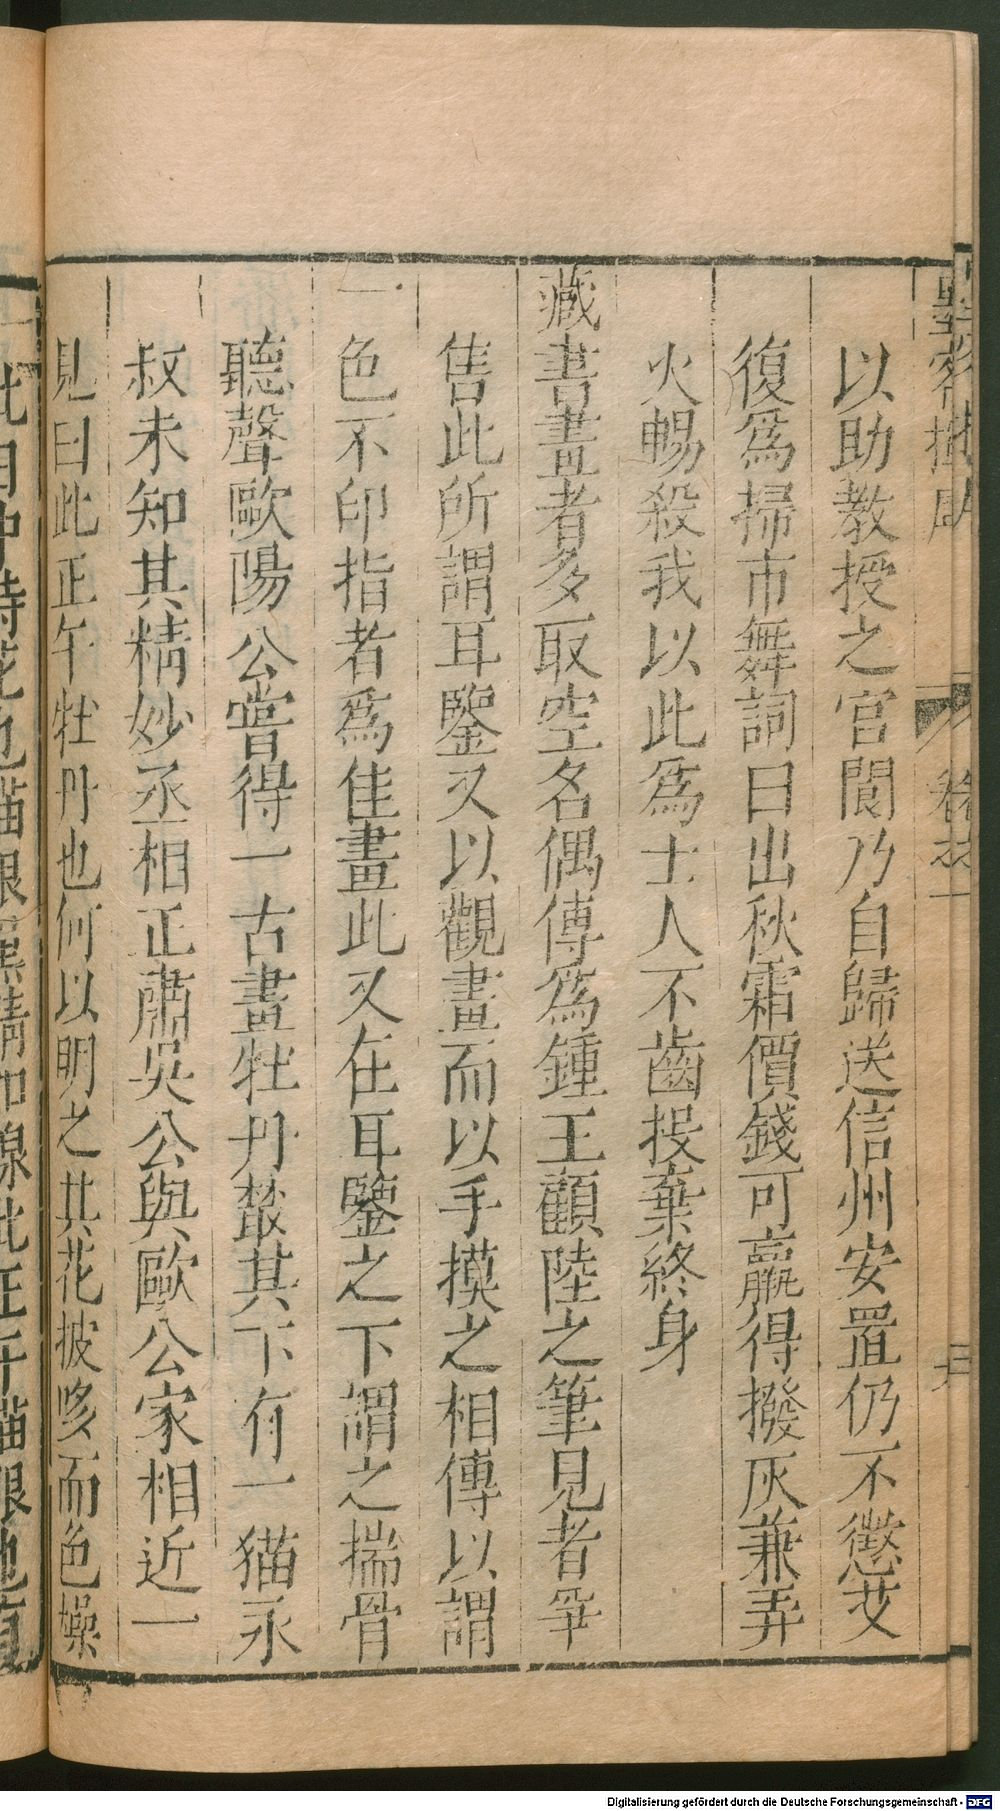 以助教授之官閬乃自歸送信州安置仍不懲艾
復爲掃市舞詞曰出秋霜價錢可贏得撥灰兼弄
火暢殺我以此爲士人不齒投棄終身
藏書畫者多取空名偶傳爲鍾王顧陸之筆見者爭
售此所謂耳鑒又以觀畫而以手摸之相傳以謂
色不印指者爲佳畫此又在耳鑒之下謂之揣骨
聽聲歐陽公嘗得一古畫牡丹叢其下有一猫永
叔未知其精妙丞相正肅吳公與歐公家相近一
見曰此正午牡丹也何以明之其花披哆而色燥
此目中時花也猫眼黑睛如線此正午猫眼也有
Digitalisierung gefördert durch die Deutsche Forschungsgemeinschaft - DFG